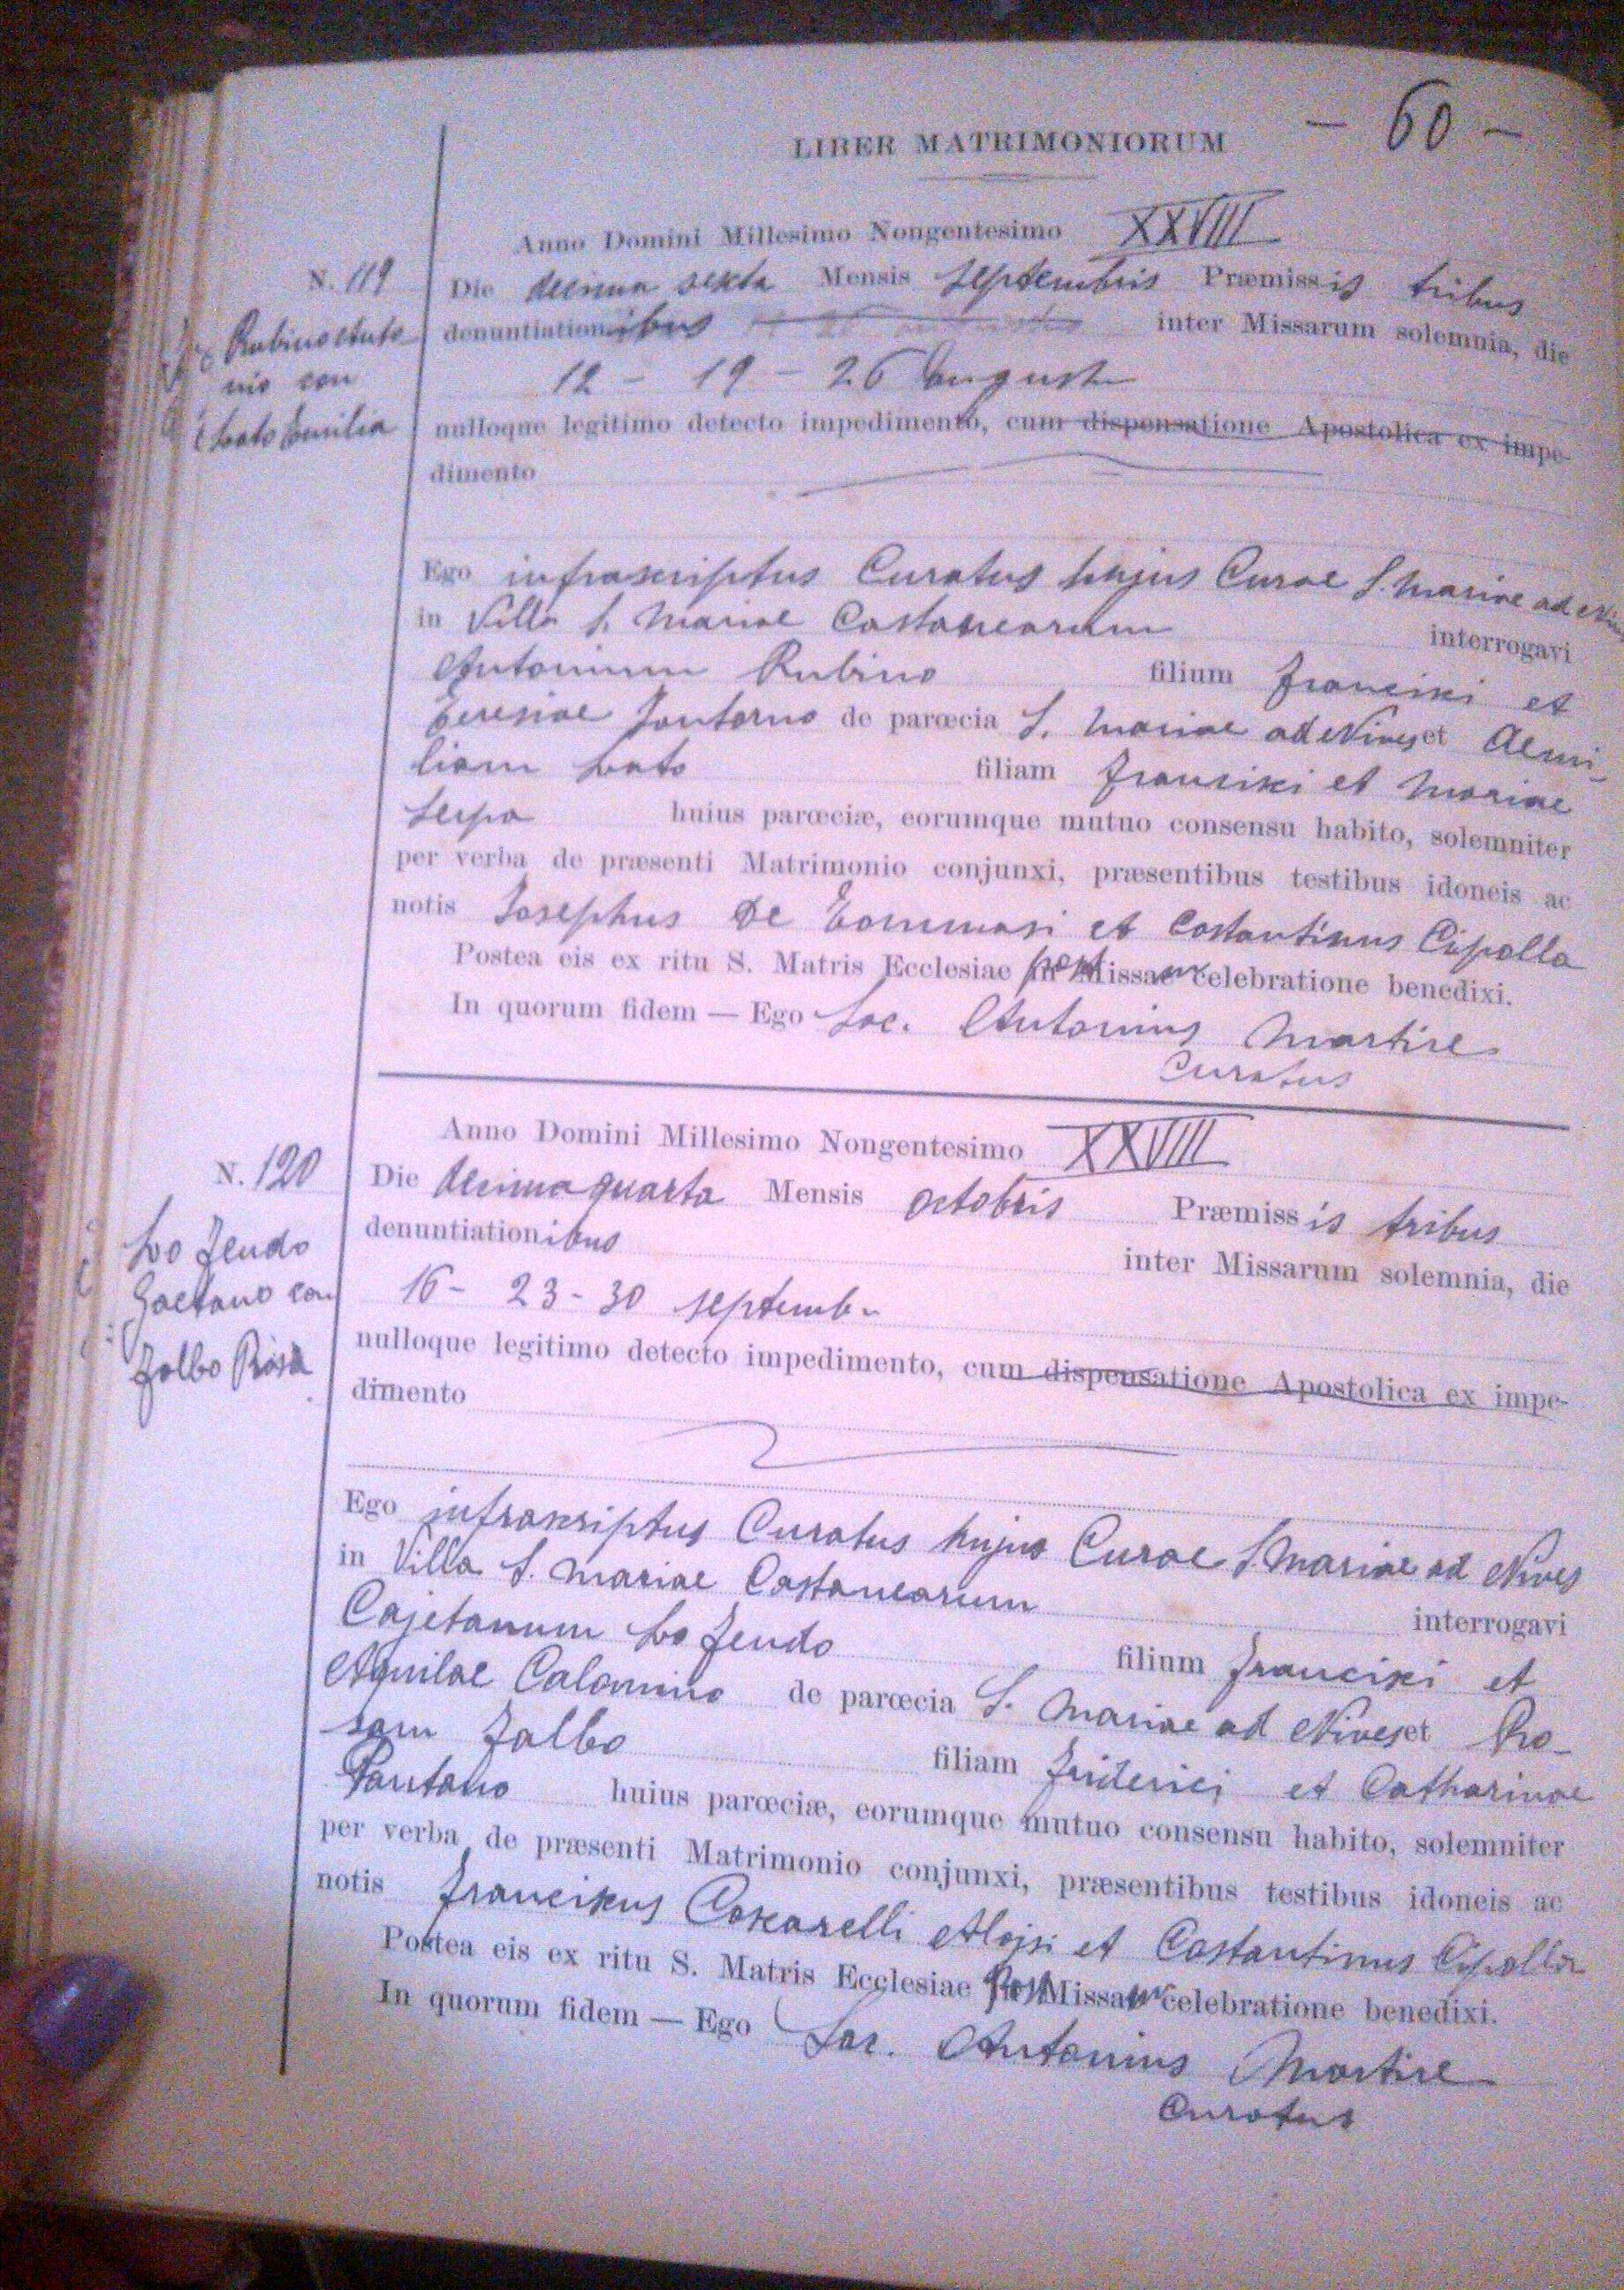 - 60 -
LIBER MATRIMONIORUM
Anno Domini Millesimo Nongentesimo XXVIII
N. 119
Die decima sexta Mensis Septembris Præmissis tribus
Rubino Anto
nio con
Lato Emilia
denuntiationibus inter Missarum solemnia, die
12 - 19 - 26 Augusti
nulloque legitimo detecto impedimento, cum dispensatione Apostolica ex impe-
dimento
Ego infrascriptus Curatus hujus Curae S. Mariae ad
in Villa S. Mariae Castanearum interrogavi
Antonium Rubino filium Francisci et
Teresiae Fontorno de parœcia S. Mariae ad Nives et Aemi-
liam Lato filiam Francisci et Mariae
Serpa huius parœciæ, eorumque mutuo consensu habito, solemniter
per verba de præsenti Matrimonio conjunxi, præsentibus testibus idoneis ac
notis Josephus De Tommasi et Costantinus Cipolla
Postea eis ex ritu S. Matris Ecclesiae post Missam celebratione benedixi.
In quorum fidem — Ego Sac. Antonius Martire
Curatus
Anno Domini Millesimo Nongentesimo XXVIII
N. 120
Die decima quarta Mensis octobris Præmissis tribus
Lo Feudo
Gaetano con
Falbo Rosa
denuntiationibus inter Missarum solemnia, die
16 - 23 - 30 septemb.
nulloque legitimo detecto impedimento, cum dispensatione Apostolica ex impe-
dimento
Ego infrascriptus Curatus hujus Curae S. Mariae ad Nives
in Villa S. Mariae Castanearum interrogavi
Cajetanum Lo Feudo filium Francisci et
Aquilae Calomino de parœcia S. Mariae ad Nives et Ro-
sam Falbo filiam Friderici et Catharinae
Pantano huius parœciæ, eorumque mutuo consensu habito, solemniter
per verba de præsenti Matrimonio conjunxi, præsentibus testibus idoneis ac
notis Franciscus Coscarelli Alojsi et Costantinus Cipolla
Postea eis ex ritu S. Matris Ecclesiae post Missam celebratione benedixi.
In quorum fidem — Ego Sac. Antonius Martire
Curatus